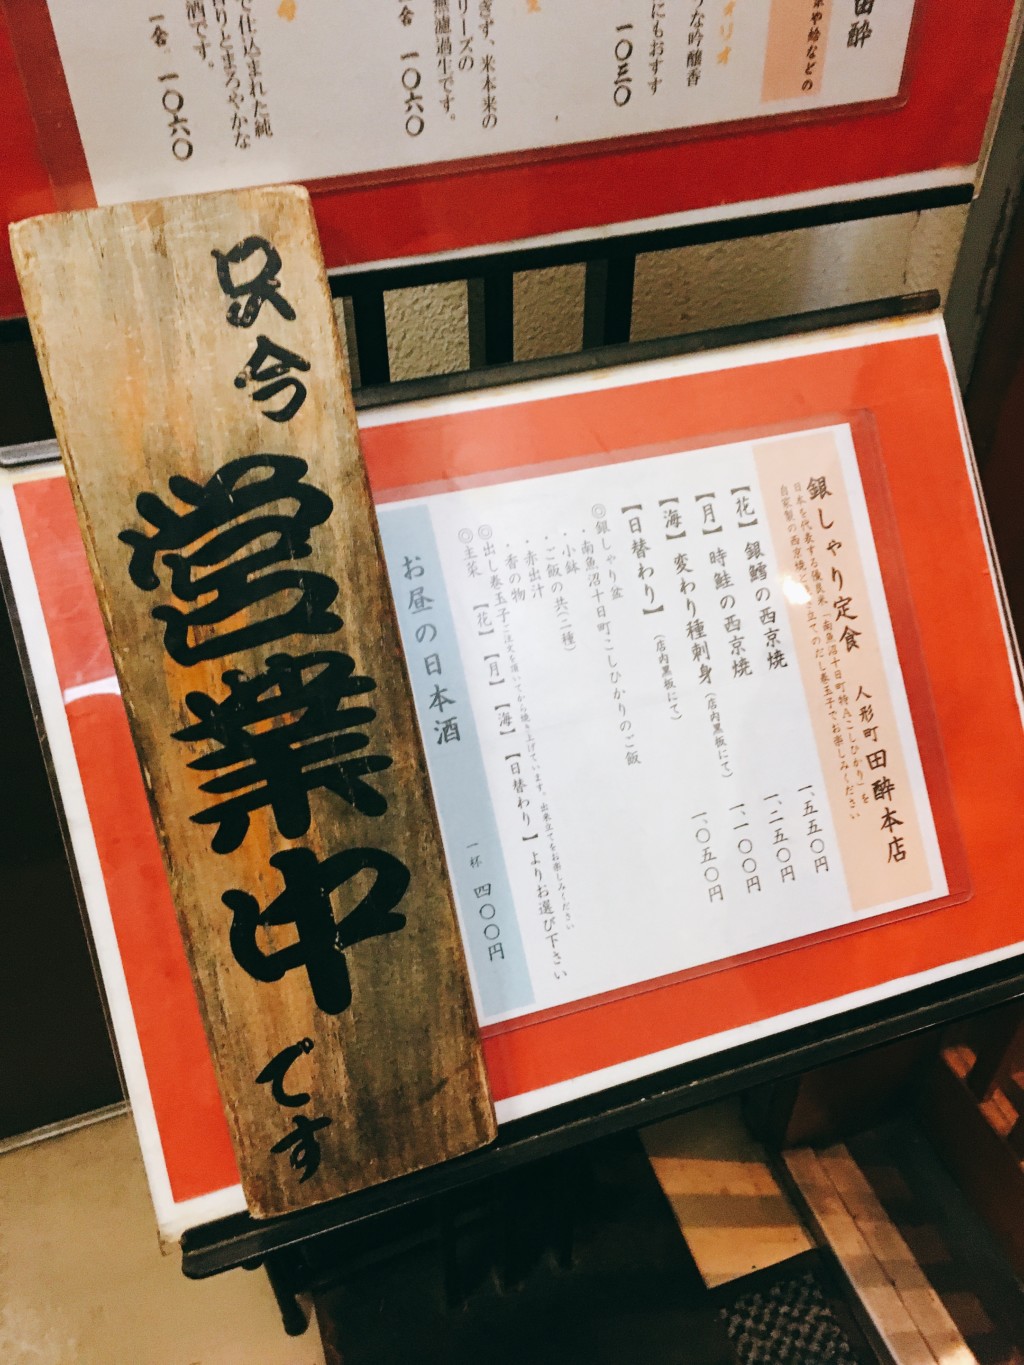 田酔
オリオ
一〇三〇
一合 一〇六〇
一合 一〇六〇
只今営業中です
銀しゃり定食 人形町田酔本店
日本を代表する優良米「南魚沼十日町特Aこしひかり」を
自家製の西京焼と焼き立てのだし巻玉子でお楽しみください
【花】銀鱈の西京焼 一、五五〇円
【月】時鮭の西京焼 一、二五〇円
【海】変わり種刺身(店内黒板にて) 一、一〇〇円
【日替わり】(店内黒板にて) 一、〇五〇円
◎銀しゃり盆
・南魚沼十日町こしひかりのご飯
・小鉢
・ご飯の共(二種)
・赤出汁
・香の物
◎出し巻玉子ご注文を頂いてから焼き上げています。出来立てをお楽しみください
◎主菜 【花】【月】【海】【日替わり】よりお選び下さい
お昼の日本酒 一杯 四〇〇円